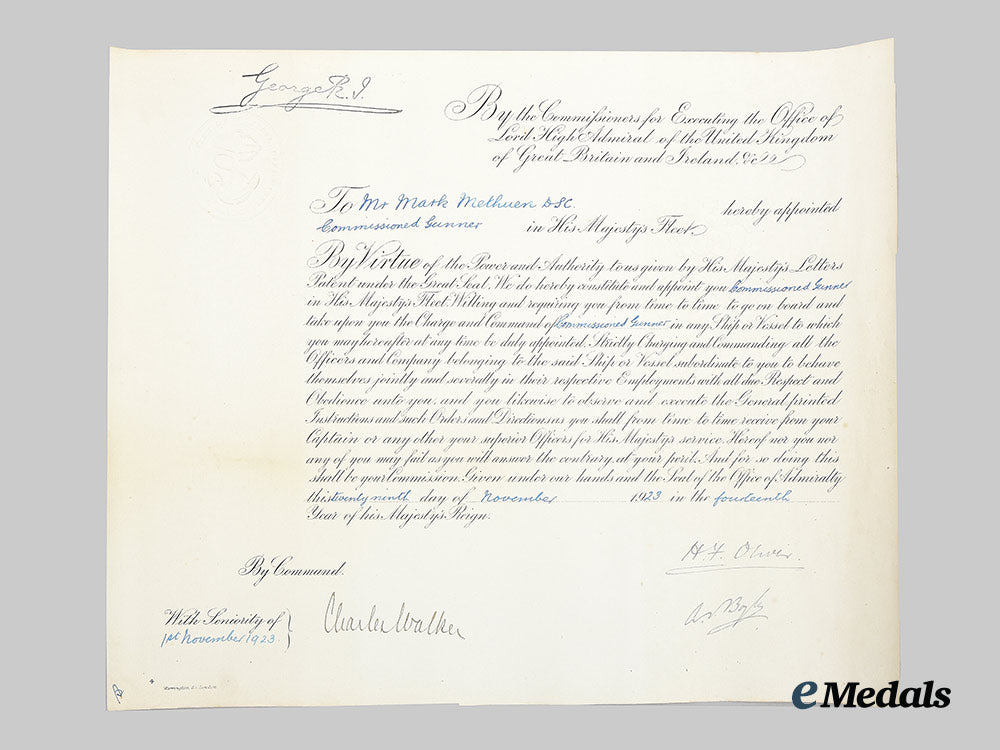 George R. I.
By the Commissioners for Executing the Office of
Lord High Admiral of the United Kingdom
of Great-Britain and Ireland. &c
To Mr Mark Methuen DSC. hereby appointed
Commissioned Gunner in His Majesty's Fleet
By Virtue of the Power and Authority to us given by His Majesty's Letters
Patent under the Great Seal, We do hereby constitute and appoint you Commissioned Gunner
in His Majesty's Fleet. Willing and requiring you from time to time to go on board and
take upon you the Charge and Command of Commissioned Gunner in any Ship or Vessel to which
you may hereafter at any time be duly appointed. Strictly Charging and Commanding all the
Officers and Company belonging to the said Ship or Vessel subordinate to you to behave
themselves jointly and severally in their respective Employments with all due Respect and
Obedience unto you; and you likewise to observe and execute the General printed
Instructions and such Orders and Directions as you shall from time to time receive from your
Captain or any other your superior Officers for His Majesty's service. Hereof nor you nor
any of you may fail as you will answer the contrary at your peril. And for so doing this
shall be your Commission. Given under our hands and the Seal of the Office of Admiralty
this twenty ninth day of November 1923 in the fourteenth
Year of his Majesty's Reign.
H. F. Oliver.
By Command.
With Seniority of
1st November 1923.
Charles Walker
eMedals